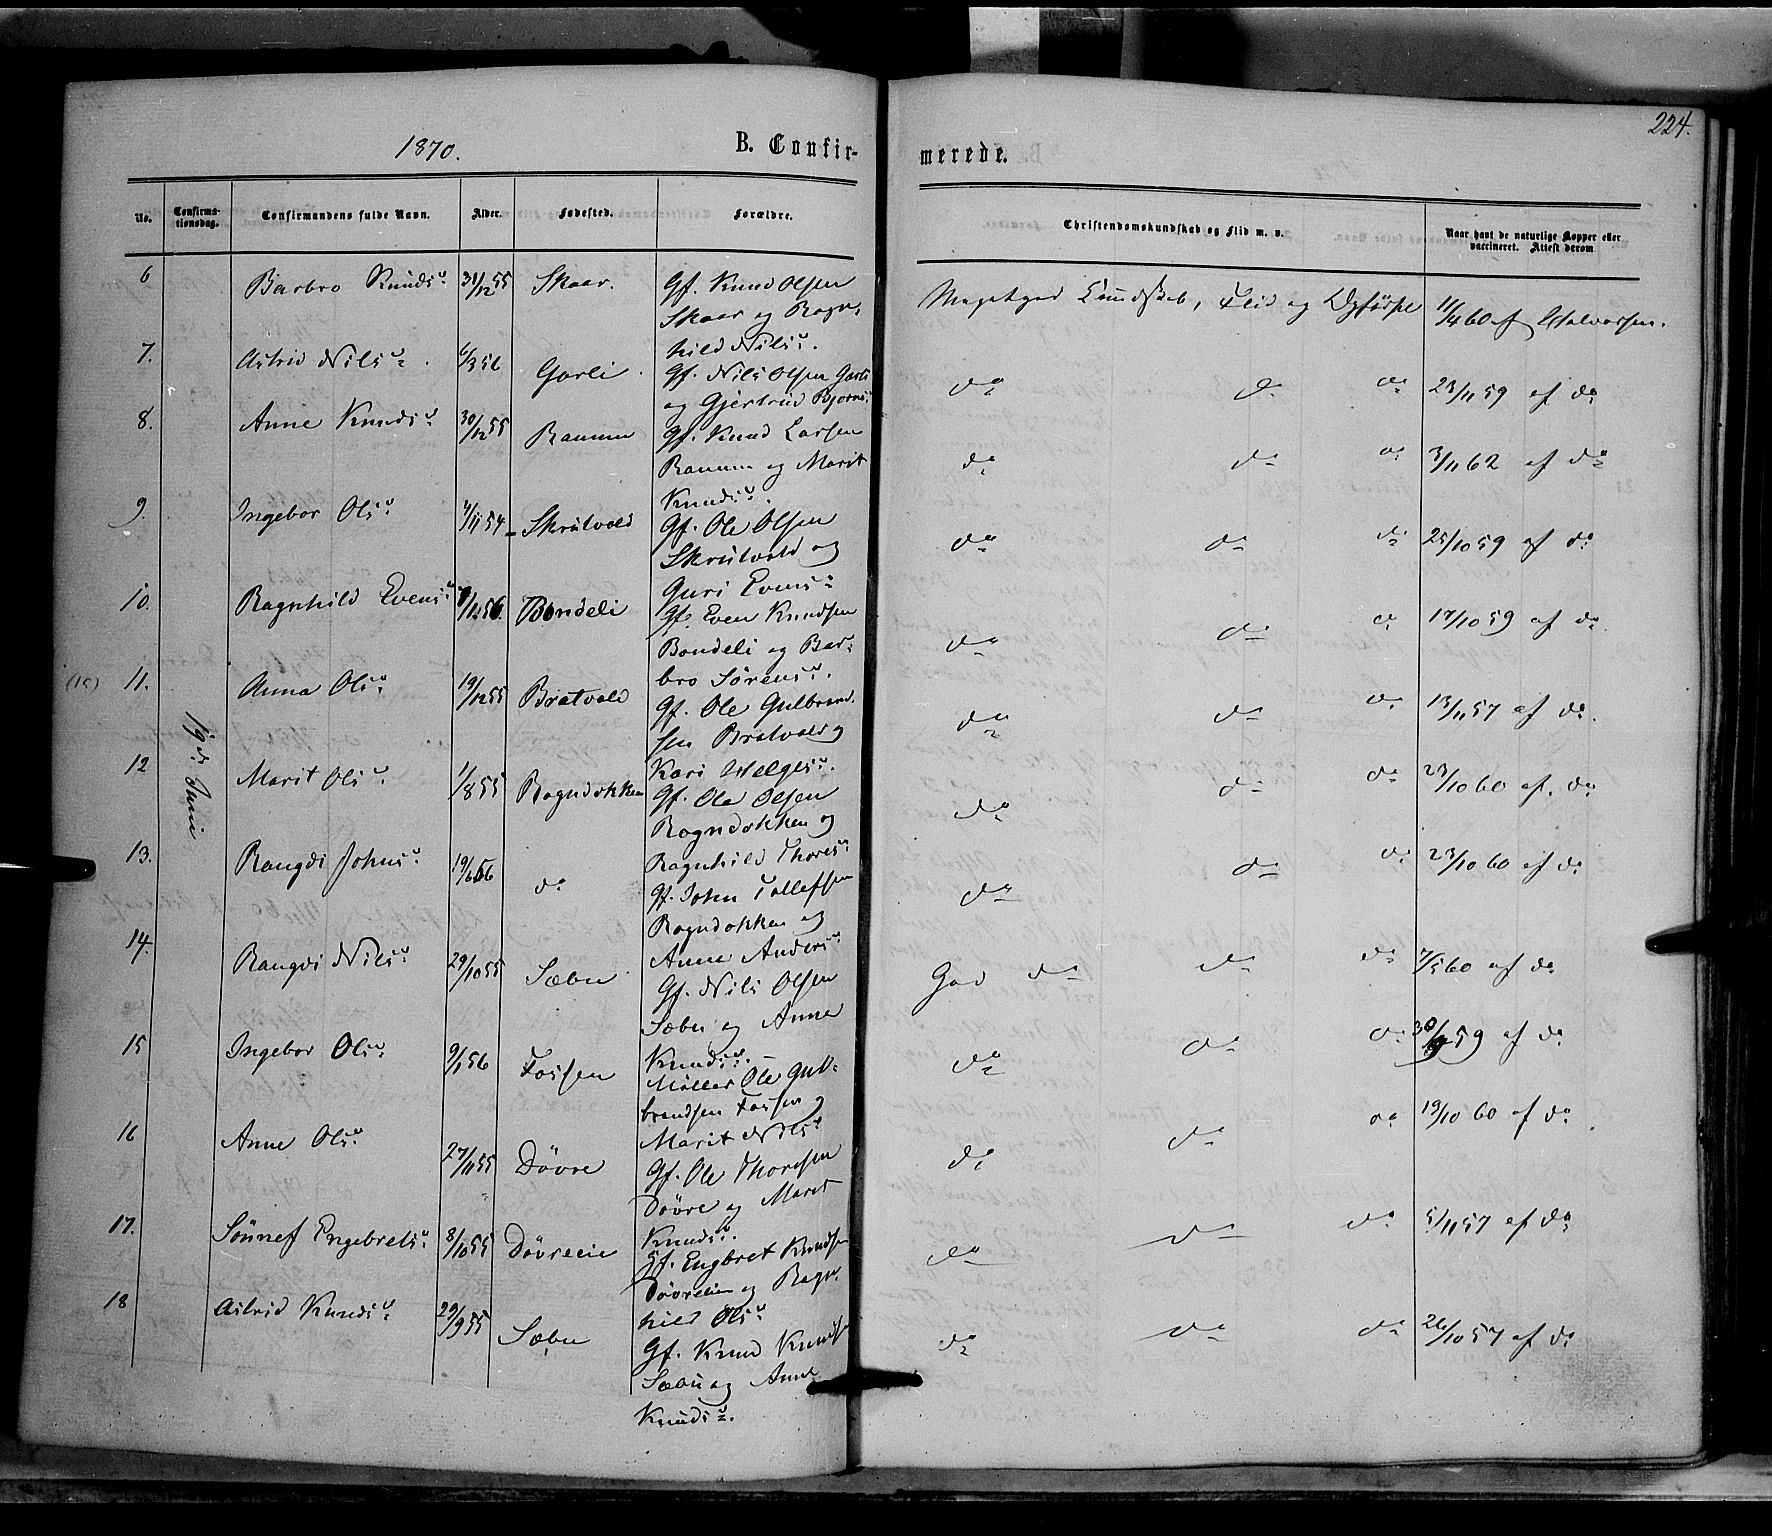 224.
1870. B. Confir- merede.
No. Confirmationsdag. Confirmandens fulde Navn. Alder. Fødested. Forældre. Christendomskundskab og Flid m. v. Naar havt de naturlige Kopper eller vaccineret. Attest derom
19de Juni
6 Barbro Knudsd. 31/12 55 Skaar. Gf. Knud Olsen
Skaar og Ragn-
hild Nilsd.
Meget god Kundskab, Flid og Opførsel 11/4 60 af Halvorsen.
7. Astrid Nilsd. 6/3 56 Garli. Gf. Nils Olsen Garli
og Gjertrud Bjørnsd.
do do do 23/11 59 af do
8. Anne Knudsd. 30/12 55 Ramun Gf. Knud Larsen
Ramun og Marit
Knudsd.
do do do 3/11 62 af do
9. Ingebor Olsd. 4/11 54 Skrutvold Gf. Ole Olsen
Skrutvold og
Guri Evensd.
do do do 25/10 59 af do
10. Ragnhild Evensd. /12 56. Bondeli Gf. Even Knudsen
Bondeli og Bar-
bro Sørensd.
do do do 17/10 59 af do
(15) 11. Anna Olsd. 19/12 55 Bratvold Gf. Ole Gulbrand-
sen Bratvold og
Kari Helgesd.
do do do 13/11 57 af do.
12 Marit Olsd. 1/8 55 Rogndokken Gf. Ole Olsen
Rogndokken og
Ragnhild Thoresd.
do do do 23/10 60 af. do
13. Rangdi Johnsd. 19/6 56 do Gf. John Tollefsen
Rogndokken og
Anne Andersd.
do do do 23/10 60 af do
14. Rangdi Nilsd. 29/10 55 Sæbu Gf. Nils Olsen
Sæbu og Anne
Knudsd.
God do do do 7/5 60 af do
15 Ingebor Olsd. 9/1 56 Fossen Møller Ole Gul-
brandsen Fossen og
Marit Nilsd.
do do do 30/9 59 af do
16 Anne Olsd. 27/11 55 Døvre Gf. Ole Thoresen
Døvre og Marit
Knudsd.
do do do 19/10 60 af do
17. Sønnef Engebretsd. 8/10 55 Døvreeie Gf. Engbret Knudsen
Døvreeie og Ragn-
hild Olsd.
do do do 5/11 57 af do
18 Astrid Knudsd. 29/9 55 Sæbu Gf. Knud Knudsen
Sæbu og Anne
Knudsd.
do do do 26/10 57 af do